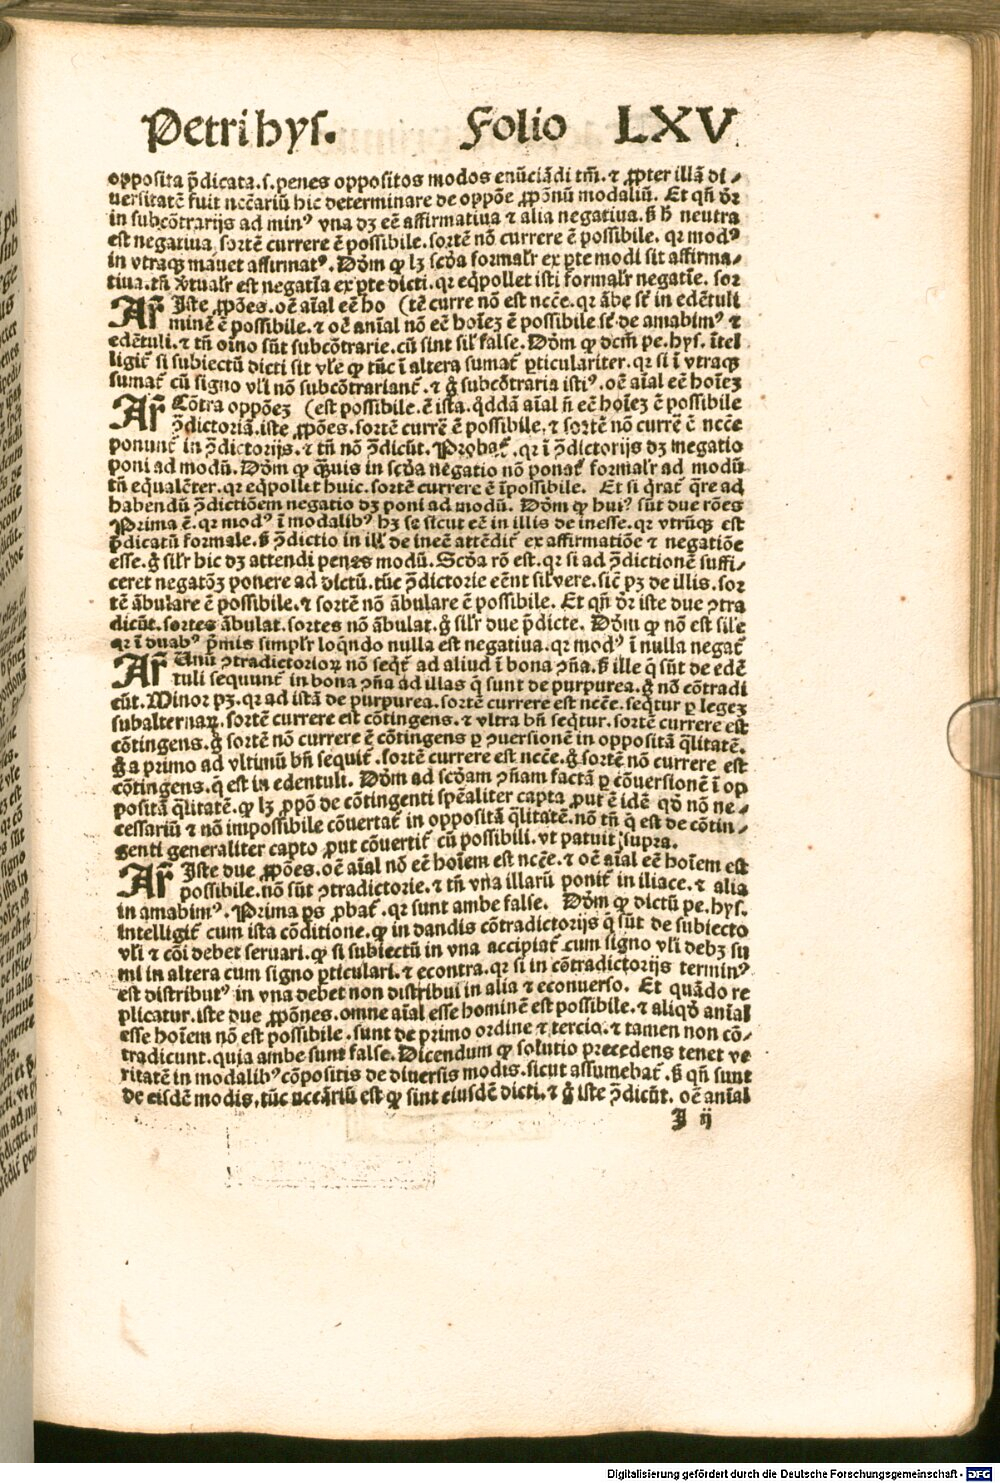 Petri hys. Folio LXV
opposita p̄dicata.s.penes oppositos modos enūciādi tm̄.⁊ ꝓpter illā di⸗
uersitatē fuit nccāriū hic determinare de oppōe ꝓpōnū modaliū. Et qn̄ dr̄
in subcōtrarijs ad minꝰ vna dꝫ eē affirmatiua ⁊ alia negatiua. neutra
est negatiua sortē currere ē possibile.sortē nō currere ē possibile. qr modꝰ
in vtraqꝫ manet affirmatꝰ. Dd̄m ꝙ lꝫ scd̄a formalr̄ ex ꝑte modi sit affirma⸗
tiua.tn̄ v̄tualr̄ est negatīa ex ꝑte dicti.qr eq̄pollet isti formalr̄ negatīe. sor
Ar̄ Iste ꝓpōes.oē aīal eē ho (tē curre nō est nccē.qr ābe sc̄t in edētuli
minē ē possibile.⁊ oē anīal nō eē hoīeꝫ ē possibile sc̄t de amabimꝰ ⁊
edētuli.⁊ tn̄ oīno sūt subcōtrarie.cū sint sil̄ false. Dd̄m ꝙ dcm̄ pe.hys. ītel
ligit̄ si subiectū dicti sit vl̄e ꝙ tūc ī altera sumat̄ ꝑticulariter.qr si ī vtraqꝫ
sumat̄ cū signo vl̄i nō subcōtrariant̄.⁊ g̊ subcōtraria istiꝰ.oē aīal eē hoīeꝫ
Ar̄ Cōtra oppōeꝫ (est possibile.ē ista.q̊ddā aīal n̄ eē hoīeꝫ ē possibile
ꝯ̄dictoriā.iste ꝓpōes.sortē currē ē possibile.⁊ sortē nō currē ē nccē
ponunt̄ in ꝯ̄dictorijs.⁊ tn̄ nō ꝯ̄dicūt. Probat̄.qr ī ꝯ̄dictorijs dꝫ negatio
poni ad modū. Dd̄m ꝙ q̄uis in scd̄a negatio nō ponat̄ formalr̄ ad modū
tn̄ eq̄ualēter.qr eq̄pollet huic.sortē currere ē īpossibile. Et si q̄rat̄ q̄re ad
habendū ꝯ̄dictiōem negatio dꝫ poni ad modū. Dd̄m ꝙ huiꝰ sūt due rōes
Prima ē.qr modꝰ ī modalibꝰ hꝫ se sicut eē in illis de inesse.qr vtrūqꝫ est
p̄dicatū formale. ꝯ̄dictio in ill̄ de ineē attēdit̄ ex affirmatiōe ⁊ negatiōe
esse.g̊ silr̄ hic dꝫ attendi penes modū. Scd̄a rō est.qr si ad ꝯ̄dictionem suffi⸗
ceret negatōꝫ ponere ad dictū.tūc ꝯ̄dictorie eēnt sil̄ vere.sic̄ pꝫ de illis.sor
tē ābulare ē possibile.⁊ sortē nō ābulare ē possibile. Et qn̄ dr̄ iste due ꝯtra
dicūt.sortes ābulat.sortes nō ābulat.g̊ silr̄ due p̄dicte. Dd̄m ꝙ nō est sil̄e
qr ī duabꝰ p̄mis simplr̄ loq̄ndo nulla est negatiua.qr modꝰ ī nulla negat̄
Ar̄ Vnū ꝯtradictorioꝝ nō seq̄t̄ ad aliud ī bona ꝯn̄a. ille q̄ sūt de edē
tuli sequunt̄ in bona ꝯn̄a ad illas q̄ sunt de purpurea.g̊ nō cōtradi
cūt. Minor pꝫ.qr ad istā de purpurea.sortē currere est nccē.seq̄tur ꝑ legeꝫ
subalternaꝝ.sortē currere est cōtingens.⁊ vltra bn̄ seq̄tur.sortē currere est
cōtingens.g̊ sortē nō currere ē cōtingens ꝑ ꝯuersionē in oppositā q̄litatē.
g̊ a primo ad vltimū bn̄ sequit̄.sortē currere est nccē.g̊ sortē nō currere est
cōtingens.q̄ est in edentuli. Dd̄m ad scd̄am ꝯn̄am factā ꝑ cōuersionē ī op
positā q̄litatē.ꝙ lꝫ ꝓpō de cōtingenti spēaliter capta ꝓut ē idē qd̄ nō ne⸗
cessariū ⁊ nō impossibile cōuertat̄ in oppositā q̄litatē.nō tn̄ q̄ est de cōtin⸗
genti generaliter capto ꝓut cōuertit̄ cū possibili.vt patuit supra.
Ar̄ Iste due ꝓpōes.oē aīal nō eē hoīem est nccē.⁊ oē aīal eē hoīem est
possibile.nō sūt ꝯtradictorie.⁊ tn̄ vna illarū ponit̄ in iliace.⁊ alia
in amabimꝰ. Prima ꝑs ꝓbat̄.qr sunt ambe false. Dd̄m ꝙ dictū pe.hys.
intelligit̄ cum ista cōditione.ꝙ in dandis cōtradictorijs q̄ sūt de subiecto
vl̄i ⁊ cōi debet seruari.ꝙ si subiectū in vna accipiat̄ cum signo vl̄i debꝫ su
mi in altera cum signo ꝑticulari.⁊ econtra.qr si in cōtradictorijs terminꝰ
est distributꝰ in vna debet non distribui in alia ⁊ econuerso. Et quādo re
plicatur.iste due ꝓpōnes.omne aīal esse hominē est possibile.⁊ aliqd̄ anīal
esse hoīem nō est possibile.sunt de primo ordine ⁊ tercio.⁊ tamen non cō⸗
tradicunt.quia ambe sunt false. Dicendum ꝙ solutio precedens tenet ve
ritatē in modalibꝰ cōpositis de diuersis modis.sicut assumebat̄. qn̄ sunt
de eisdē modis.tūc nccāriū est ꝙ sint eiusdē dicti.⁊ g̊ iste ꝯ̄dicūt. oē anīal
I ij
Digitalisierung gefördert durch die Deutsche Forschungsgemeinschaft - DFG